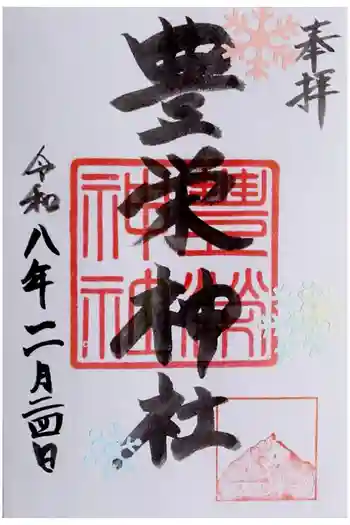 奉拝
豊栄神社
豐榮
神社
令和八年二月二四日